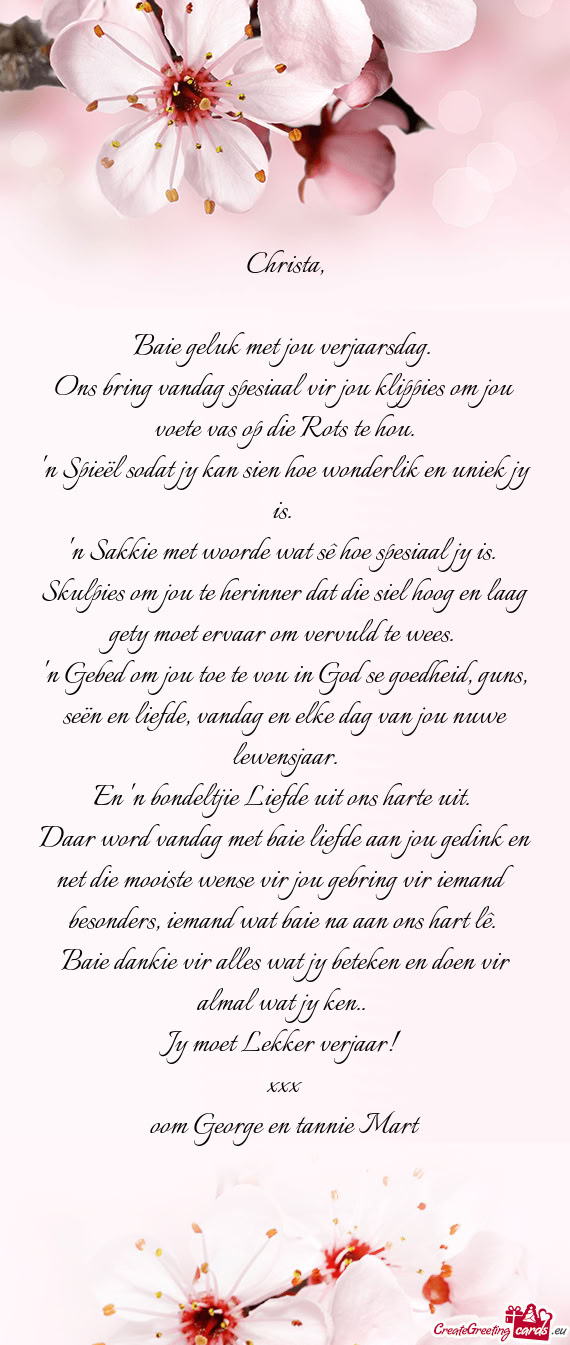 Christa,
Baie geluk met jou verjaarsdag.
Ons bring vandag spesiaal vir jou klippies om jou
voete vas op die Rots te hou.
'n Spieël sodat jy kan sien hoe wonderlik en uniek jy
is.
'n Sakkie met woorde wat sê hoe spesiaal jy is.
Skulpies om jou te herinner dat die siel hoog en laag
gety moet ervaar om vervuld te wees.
'n Gebed om jou toe te vou in God se goedheid, guns,
seën en liefde, vandag en elke dag van jou nuwe
lewensjaar.
En 'n bondeltjie Liefde uit ons harte uit.
Daar word vandag met baie liefde aan jou gedink en
net die mooiste wense vir jou gebring vir iemand
besonders, iemand wat baie na aan ons hart lê.
Baie dankie vir alles wat jy beteken en doen vir
almal wat jy ken..
Jy moet Lekker verjaar!
xxx
oom George en tannie Mart
CreateGreeting cards .eu